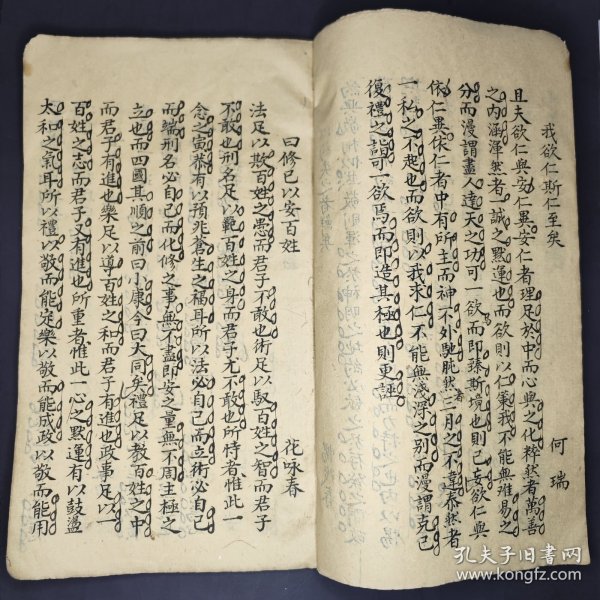 我欲仁斯仁至矣
何瑞
且夫欲仁與安仁異安仁者理足於中而心與之化粹然者萬善
之內涵渾然者一誠之默運也而欲則以仁策我不能無難易之
分而漫謂盡人達天之功可一欲而即臻斯境也則已妄欲仁與
依仁異依仁者中有所主而神不外馳既然三月之不違泰然者
一私之不起也而欲則以我求仁不能無淺深之別而漫謂克己
復禮之詣可一欲焉而即造其極也則更誣
曰修己以安百姓
花咏春
法足以欺百姓之愚而君子不敢也術足以馭百姓之智而君子
不敢也刑名足以範百姓之身而君子尤不敢也所恃者惟此一
念之寅恭有以預兆蒼生之福耳所以法必自己而立術必自己
而端刑名必自己而化修之事無不盡即安之量無不周主極之
立也而四國其順之前曰小康今曰大同矣禮足以教百姓之中
而君子有進也樂足以導百姓之和而君子有進也政事足以一
百姓之志而君子又有進也所重者惟此一心之默運有以鼓盪
太和之氣耳所以禮以敬而能定樂以敬而能成政以敬而能用
孔夫子旧書网
www.kongfz.com